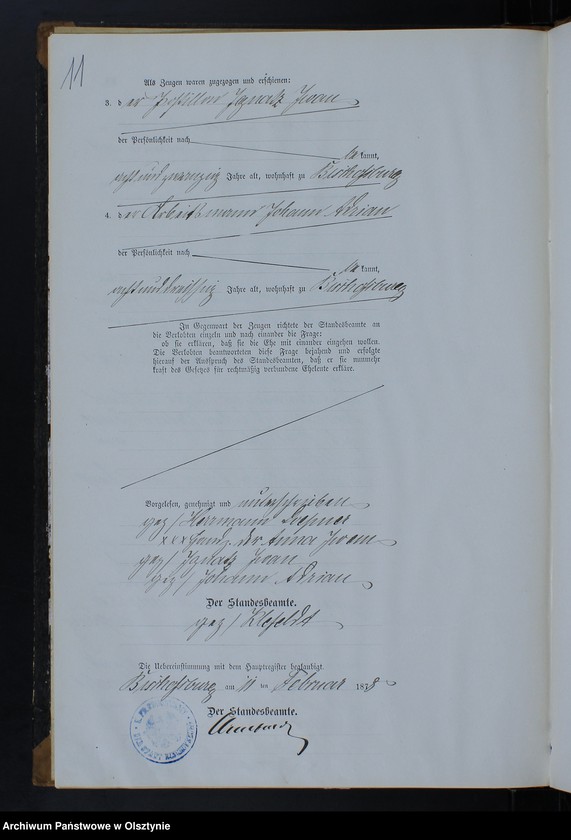 11
Als Zeugen waren zugezogen und erschienen:
3. der Postillon Ignatz Iwan
der Persönlichkeit nach
be kannt,
acht und zwanzig Jahre alt, wohnhaft zu Bischofsburg
4. der Arbeitsmann Johann Adrian
der Persönlichkeit nach
be kannt,
acht und dreißig Jahre alt, wohnhaft zu Bischofsburg
In Gegenwart der Zeugen richtete der Standesbeamte an
die Verlobten einzeln und nach einander die Frage:
ob sie erklären, daß sie die Ehe mit einander eingehen wollen.
Die Verlobten beantworteten diese Frage bejahend und erfolgte
hierauf der Ausspruch des Standesbeamten, daß er sie nunmehr
kraft des Gesetzes für rechtmäßig verbundene Eheleute erkläre.
Vorgelesen, genehmigt und unterschrieben
gez/ Herrmann
xxx Handz. der Anna Iwan
gez/ Ignatz Iwan
gez/ Johann Adrian
Der Standesbeamte.
gez/ Klefeldt
Die Uebereinstimmung mit dem Hauptregister beglaubigt.
Bischofsburg am 11 ten Februar 1878
Der Standesbeamte.
Archiwum Państwowe w Olsztynie